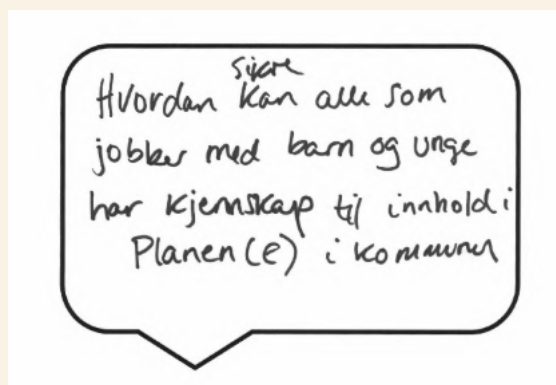 sikre
Hvordan kan alle som
jobber med barn og unge
har kjennskap til innhold i
Planen(e) i kommunen